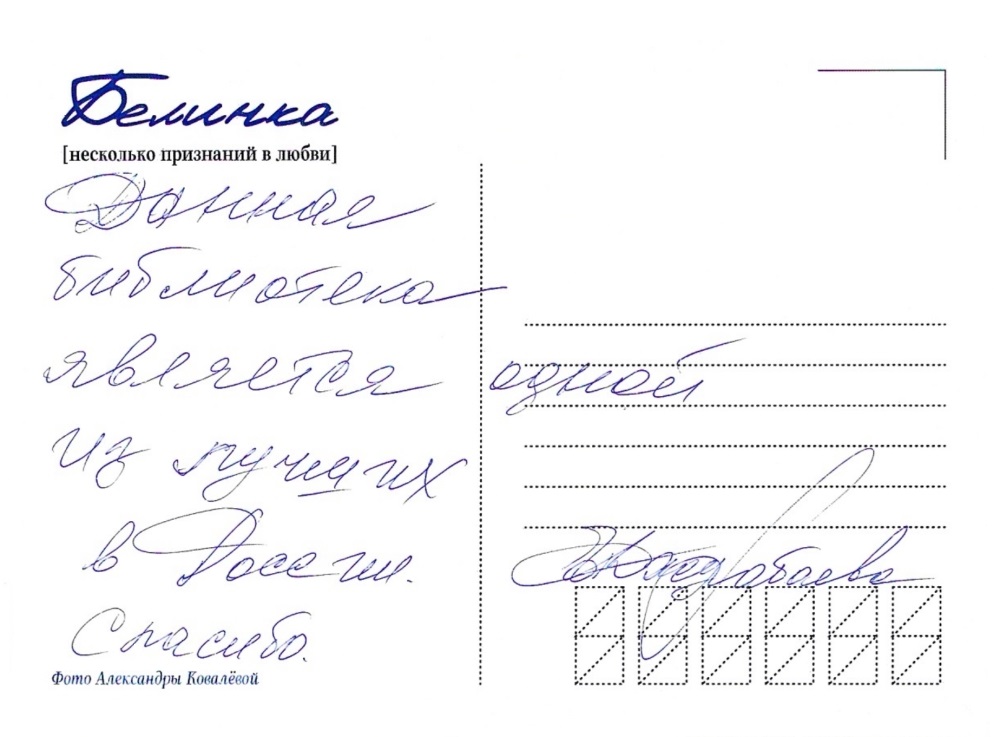 Белинка
[несколько признаний в любви]
Данная
библиотека
является одной
из лучших
в России.
Спасибо.
Фото Александры Ковалёвой